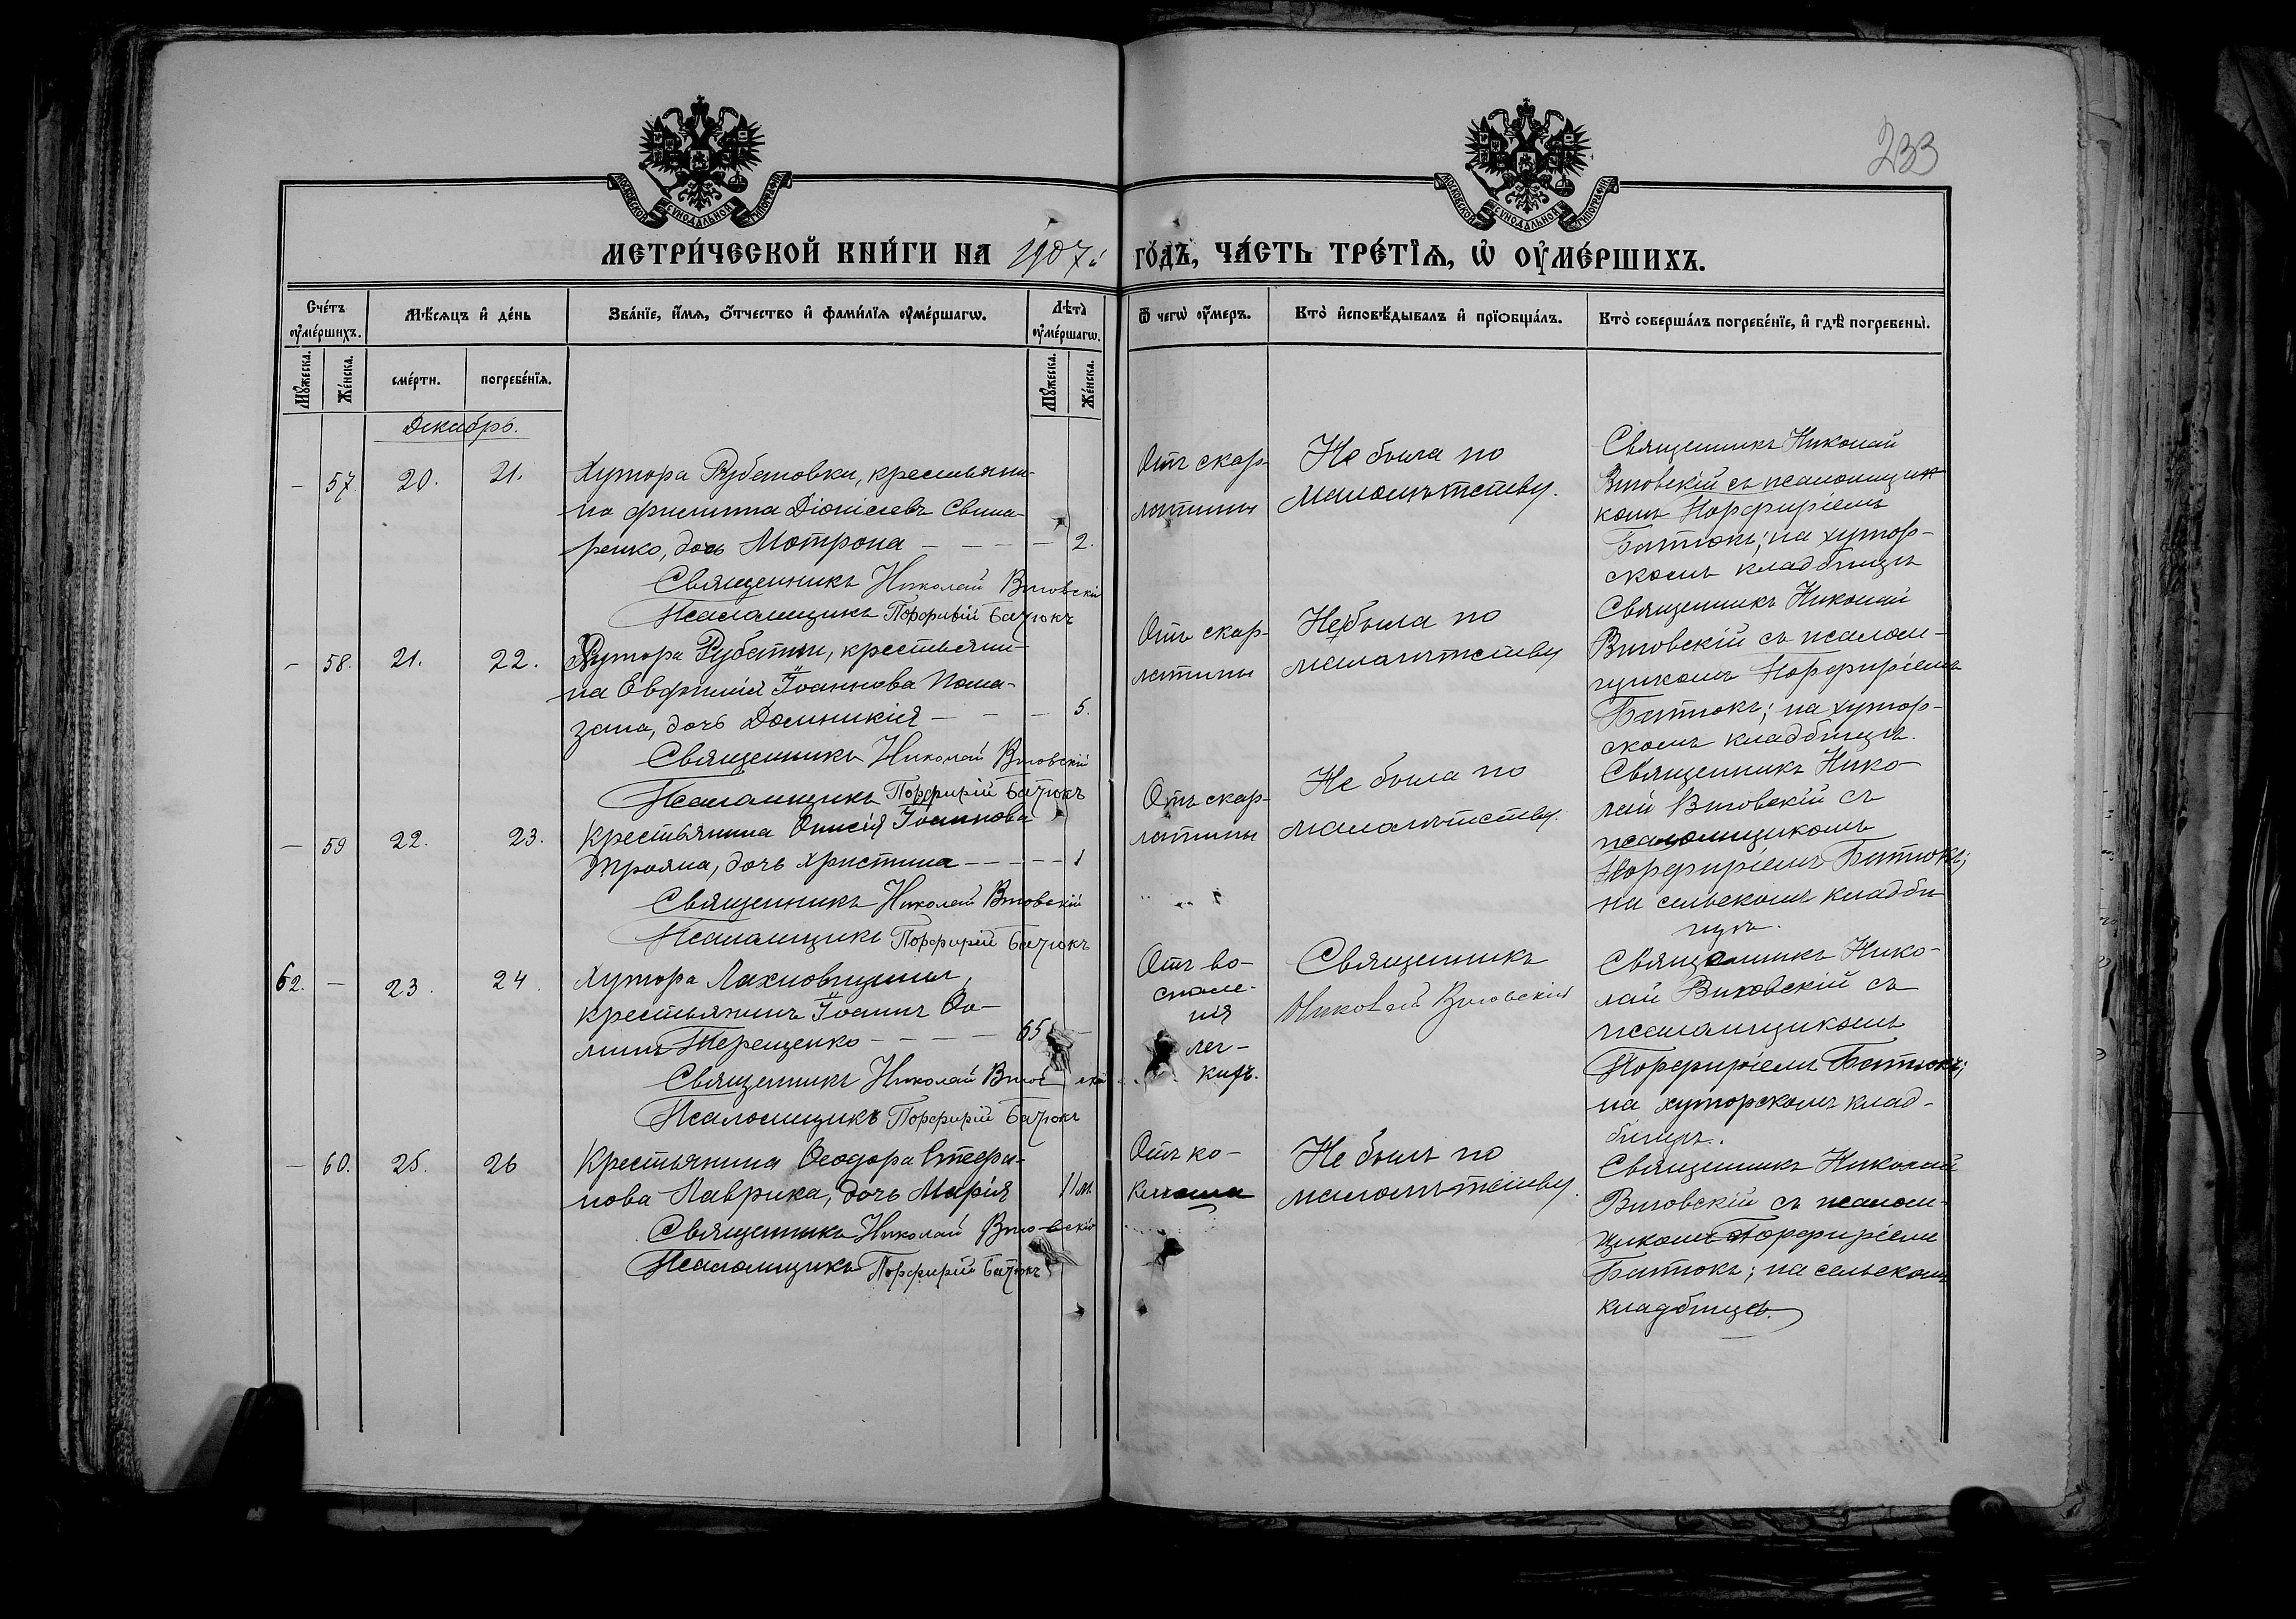 233
МОСКОВСКОЙ СѴНОДАЛЬНОЙ ТИПОГРАФІИ
МОСКОВСКОЙ СѴНОДАЛЬНОЙ ТИПОГРАФІИ
МЕТРИ́ЧЕСКОЙ КНИ́ГИ НА 1907й ГО́ДЪ, ЧА́СТЬ ТРЕ́ТІѦ, Ѡ҆ ОУ҆МЕ́РШИХЪ.
Сче́тъ оу҆ме́ршихъ.
Мꙋ́жеска.
Же́нска.
Мѣ́сѧцъ и҆ де́нь
сме́рти.
погребе́нїѧ.
Зва́нїе, и҆́мѧ, ѻ҆́тчество и҆ фами́лїѧ оу҆ме́ршагѡ.
Лѣ̀та оу҆ме́ршагѡ.
Мꙋ́жеска.
Же́нска.
Ѿ чегѡ̀ оу҆́меръ.
Кто̀ и҆сповѣ́дывалъ и҆ прїѡбща́лъ.
Кто̀ соверша́лъ погребе́нїе, и҆ гдѣ̀ погребены̀.
Декабрь.
— 57. 20. 21.
Хутора Рубановки, крестьяни-
на Филиппа Діонісіевъ Свина-
ренко, дочь Мотрона — — — — 2.
Священникъ Николай Выговскій
Псаломщикъ Порфирій Батюкъ
Отъ скар-
латины
Не была по
малолѣтству.
Священникъ Николай
Выговскій съ псаломщи
комъ Порфиріемъ
Батюкъ; на хутор-
скомъ кладбищѣ
— 58. 21. 22.
Хутора, крестьяни-
на Евфимія Іоаннова Пома-
зана, дочь Домникія — — — 5.
Священникъ Николай Выговскій
Псаломщикъ Порфирій Батюкъ
Отъ скар-
латины
Не была по
малолѣтству
Священникъ Николай
Выговскій съ псалом-
щикомъ Порфиріемъ
Батюкъ; на хутор-
скомъ кладбищѣ.
— 59 22. 23.
Крестьянина Онисія Іоаннова
Трояна, дочь Христина — — — — — 1
Священникъ Николай Выговскій
Псаломщикъ Порфирій Батюкъ
Отъ скар-
латины
Не была по
малолѣтству.
Священникъ Нико-
лай Выговскій съ
псаломщикомъ
Порфиріемъ Батюкъ;
на сельскомъ кладби
щѣ.
62. — 23. 24.
Хутора Лахновщины,
крестьянинъ Іоаннъ Ѳо-
минъ Терещенко — — — — 65 —
Священникъ Николай
Псаломщикъ Порфирій Батюкъ
Отъ во-
спале-
нія
лег-
кихъ.
Священникъ
Николай Выговскій
Священникъ Нико-
лай Выговскій съ
псаломщикомъ
Порфиріемъ Батюкъ;
на хуторскомъ клад-
бищѣ.
— 60. 25. 26
Крестьянина Ѳеодора Стефа-
нова Лаврика, дочь Марія 11 м.
Священникъ Николай Выговскій
Псаломщикъ Порфирій Батюкъ
Отъ ко-
клюша
Не былъ по
малолѣтству.
Священникъ Николай
Выговскій съ псалом-
щикомъ Порфиріемъ
Батюкъ; на сельскомъ
кладбищѣ.